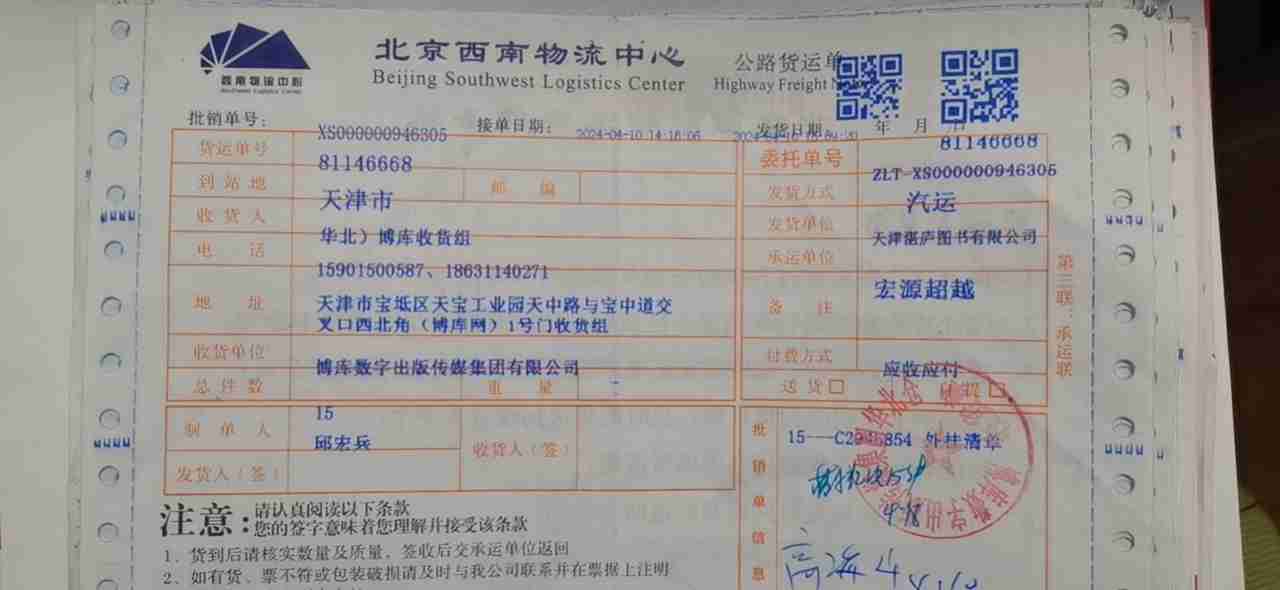 西南物流中心
Southwest Logistics Center
北京西南物流中心
Beijing Southwest Logistics Center
公路货运单
Highway Freight
批销单号: XS000000946305 接单日期: 2024-04-10 14:16:06 发货日期 年 月 日
货运单号 81146668 委托单号 81146668
ZLT-XS000000946305
到站地 天津市 邮编 发货方式 汽运
收货人 华北）博库收货组 发货单位 天津湛庐图书有限公司
电话 15901500587、18631140271 承运单位 宏源超越
地址 天津市宝坻区天宝工业园天中路与宝中道交
叉口西北角（博库网）1号门收货组
备注
收货单位 博库数字出版传媒集团有限公司 付费方式 应收应付
总件数 15 重量 送货□ 自提□
制单人 邱宏兵 收货人（签）
发货人（签）
批销单信息
15---C2 854 外挂清单
第三联：承运联
注意: 请认真阅读以下条款
您的签字意味着您理解并接受该条款
1、货到后请核实数量及质量，签收后交承运单位返回
2、如有货、票不符或包装破损请及时与我公司联系并在票据上注明